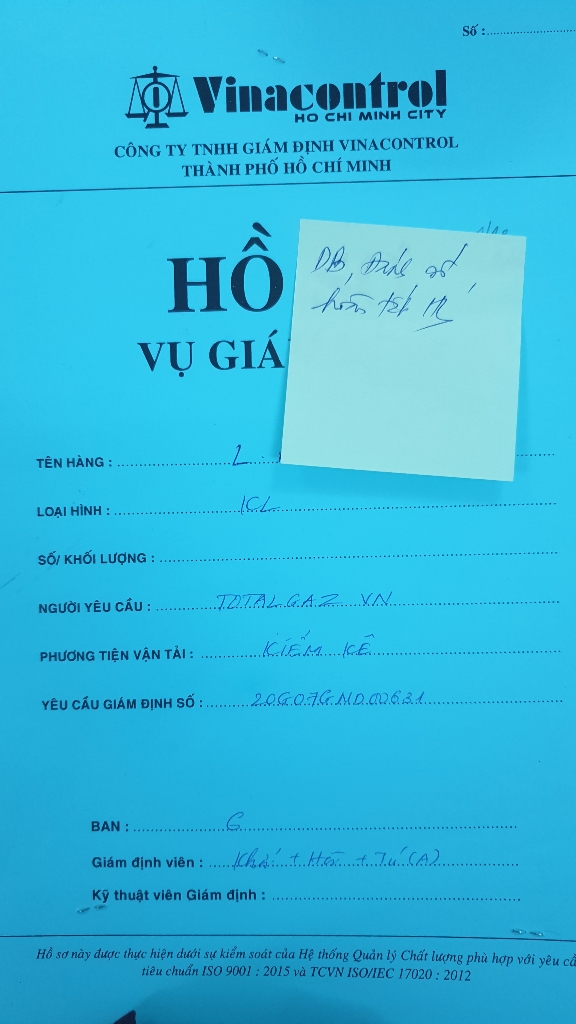 Số :
Vinacontrol
HO CHI MINH CITY
CÔNG TY TNHH GIÁM ĐỊNH VINACONTROL
THÀNH PHỐ HỒ CHÍ MINH
HỒ
VỤ GIÁ
TÊN HÀNG : L
LOẠI HÌNH : KL
SỐ/ KHỐI LƯỢNG :
NGƯỜI YÊU CẦU : TOTALGAZ VN
PHƯƠNG TIỆN VẬN TẢI : KIỂM KÊ
YÊU CẦU GIÁM ĐỊNH SỐ : 20G07GND00631
BAN : G
Giám định viên : Khái + + Tú (A)
Kỹ thuật viên Giám định :
Hồ sơ này được thực hiện dưới sự kiểm soát của Hệ thống Quản lý Chất lượng phù hợp với yêu
tiêu chuẩn ISO 9001 : 2015 và TCVN ISO/IEC 17020 : 2012